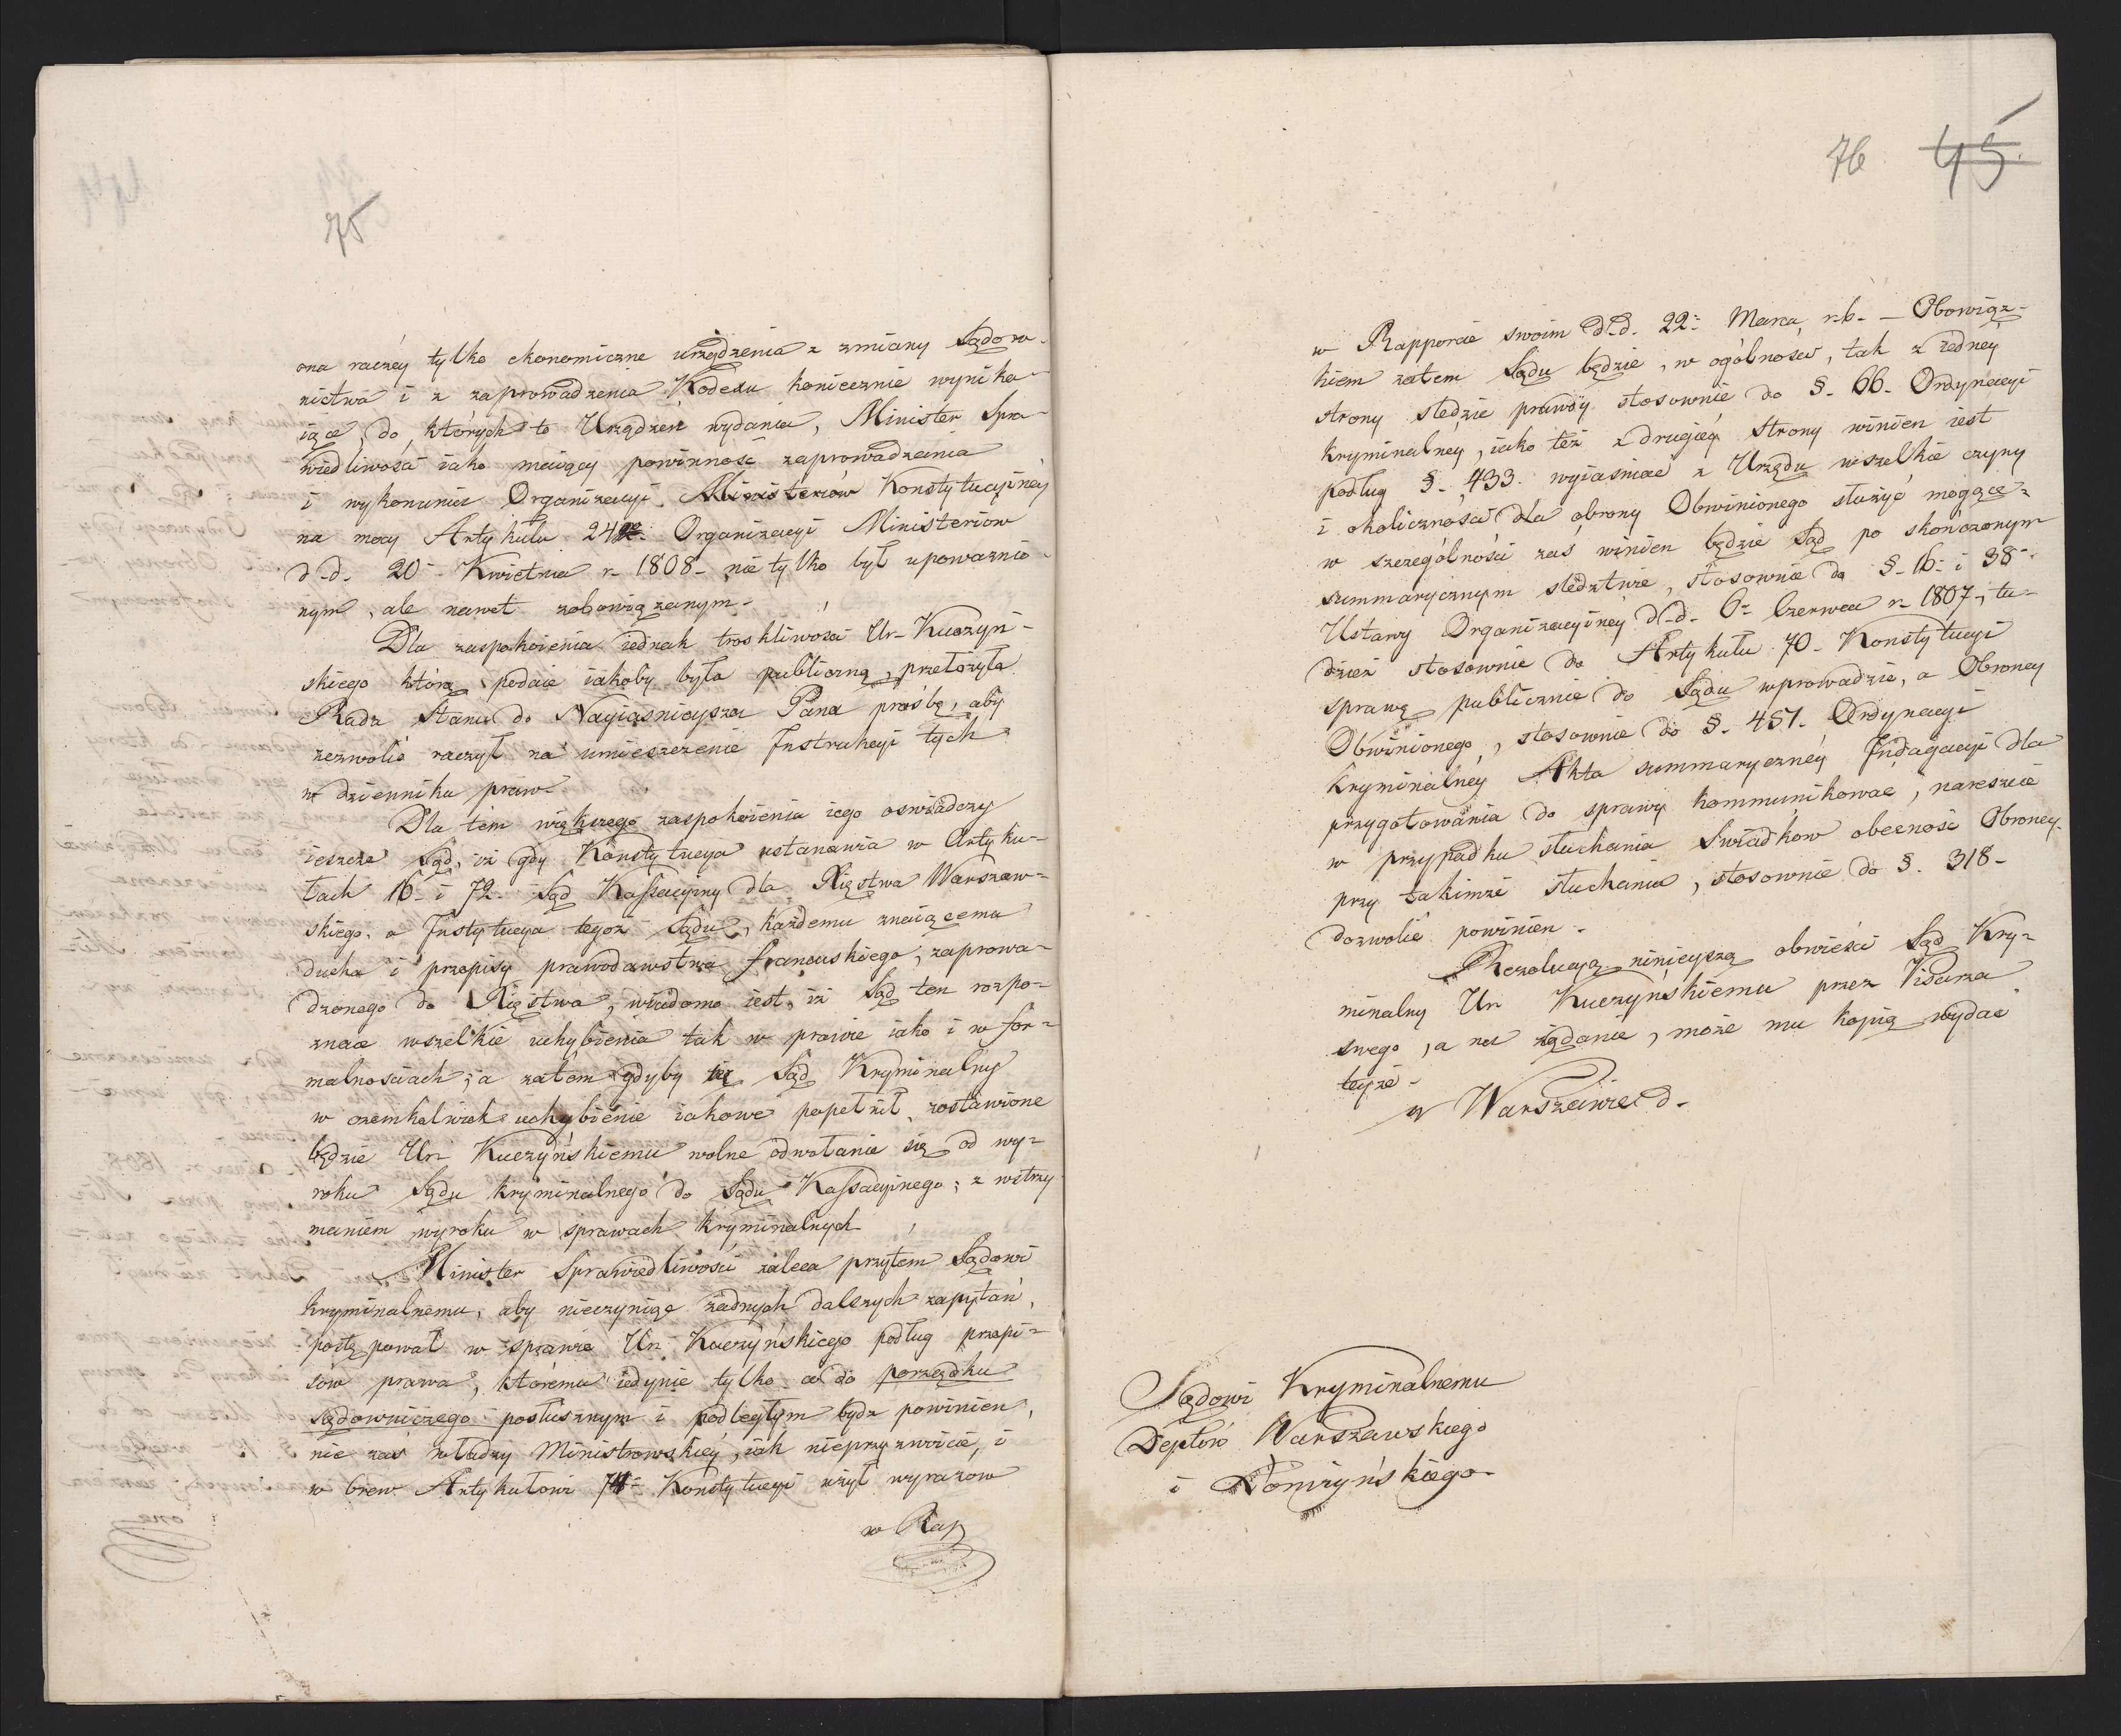 75
ona raczéy tylko ekonomiczne urządzenia z zmiany Sądow-
nictwa i z zaprowadzenia Kodexu koniecznie wynika-
iące, do których to Urządzeń wydania, Minister Spra-
wiedliwości iako maiący powinność zaprowadzenia
i wykonania Organizacyi Ministeriów Konstytucyinéy
na mocy Artykułu 24. Organizacyi Ministeriów
d.d. 20- Kwietnia r- 1808- nie tylko był upoważnio-
nym, ale nawet zobowiązanym-
Dla zaspokoienia iednak troskliwości Ur- Kuczyń-
skiego którą podaie iakoby była publiczną, przełożyła
Rada Stanu do Nayiaśnieyszego Pana prośbę, aby
zezwolić raczył na umieszczenie Instrukcyi tych
w dzienniku praw-
Dla tém większego zaspokoienia iego oswiadczy
ieszcze Sąd, iż gdy Konstytucya ustanawia w Artyku-
łach 16- i 72- Sąd Kassacyiny dla Xięstwa Warszaw-
skiego, a Instytucya tegoż Sądu, każdemu znaiącemu
ducha i przepisy prawodawstwa francuskiego, zaprowa-
dzonego do Xięstwa, wiadoma iest, iż Sąd ten rozpo-
znaie wszelkie uchybienia tak w prawie iako i w for-
malnościach; a zatem gdyby Sąd Kryminalny
w czemkolwiek uchybienie iakowe popełnił, zostawione
będzie Ur- Kuczyńskiemu wolne odwołanie się od wy-
roku Sądu kryminalnego do Sądu Kassacyinego; z wstrzy-
maniem wyroku w sprawach kryminalnych-
Minister Sprawiedliwości zaleca przytem Sądowi
kryminalnemu, aby nieczyniąc żadnych dalszych zapytań,
postępował w sprawie Ur- Kuczyńskiego podług przepi-
sów prawa, któremu iedynie tylko a do porządku
sądowniczego posłusznym i podległym bydz powinien,
nie zaś władzy Ministrowskiéy, iak nieprzyzwoicie, i
w brew Artykułowi 74- Konstytucyi użył wyrazów
w Rap
76 45.
w Rapporcie swoim d.d. 22- Marca r.b. - Obowiąz-
kiem zatem Sądu będzie, w ogólności, tak z iedney
strony sledzić prawdy stosownie do §- 66- Ordynacyi
kryminalney, iako też z drugiéy strony winien iest
podług §- 433. wyiaśniać z Urzędu wszelkie czyny
i okoliczności dla obrony Obwinionego służyć mogące-
w szczególności zaś winien będzie Sąd po skończonym
summarycznym sledztwie, stosownie do §- 16- i 38-
Ustawy Organizacyinéy d.d. 6- Czerwca r- 1807-, tu-
dzież stosownie do Artykułu 70- Konstytucyi
sprawę publicznie do Sądu wprowadzić, a Obroncy
Obwinionego, stosownie do §. 451- Ordynacyi
kryminalnéy Akta summarycznéy Indagacyi dla
przygotowania do sprawy kommunikować, nareszcie
w przypadku słuchania Swiadków obecność Obroncy
przy takimże słuchaniu, stosownie do §. 318-
dozwolić powinien-
Rezolucyą ninieyszą obwieści Sąd Kry-
minalny Ur Kuczyńskiemu przez Pisarza
swego, a na żądanie, może mu kopią wydać
teyże-
w Warszawie d-
Sądowi Kryminalnemu
Deptów Warszawskiego
i Łomżyńskiego-